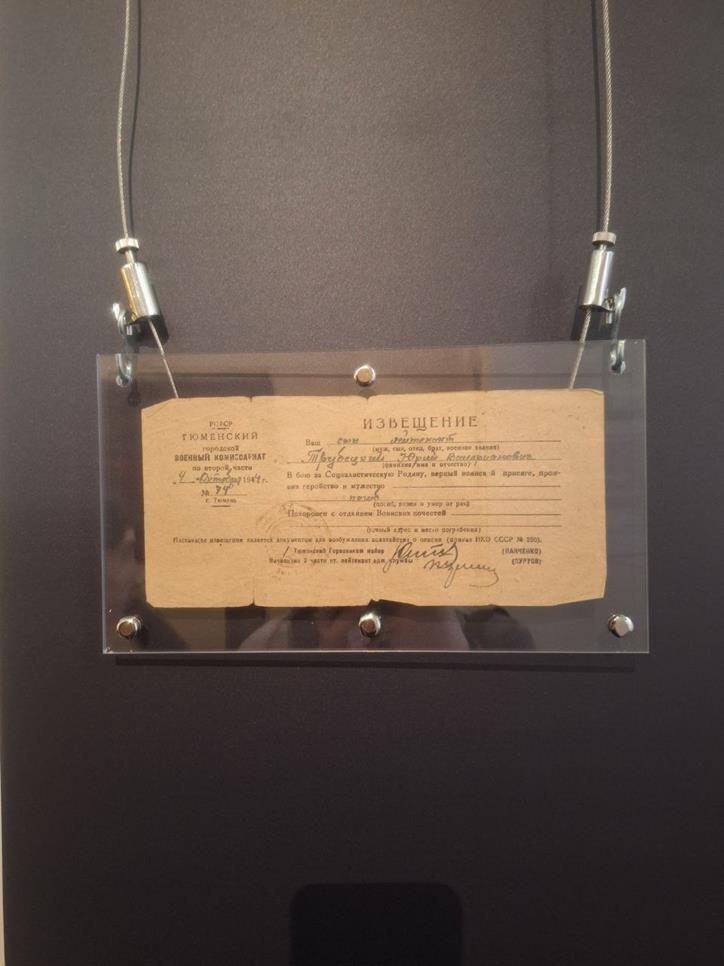 РСФСР
ТЮМЕНСКИЙ
городской
ВОЕННЫЙ КОМИССАРИАТ
по второй части
4 Октября 1944 г.
№
г. Тюмень
ИЗВЕЩЕНИЕ
Ваш сын лейтенант
(муж, сын, отец, брат, военное звание)
Трубецкий Юрий Валерионович
(фамилия, имя и отчество)
В бою за Социалистическую Родину, верный воинской присяге, проя-
вив геройство и мужество
погиб
(погиб, ранен и умер от ран)
Похоронен с отданием Воинских почестей
(точный адрес и место погребения)
Настоящее извещение является документом для возбуждения ходатайства о пенсии (приказ НКО СССР № 220).
Тюменский Горвоенком майор (ПАНЧЕНКО)
Начальник 2 части ст. лейтенант адм. службы (ПУРТОВ)